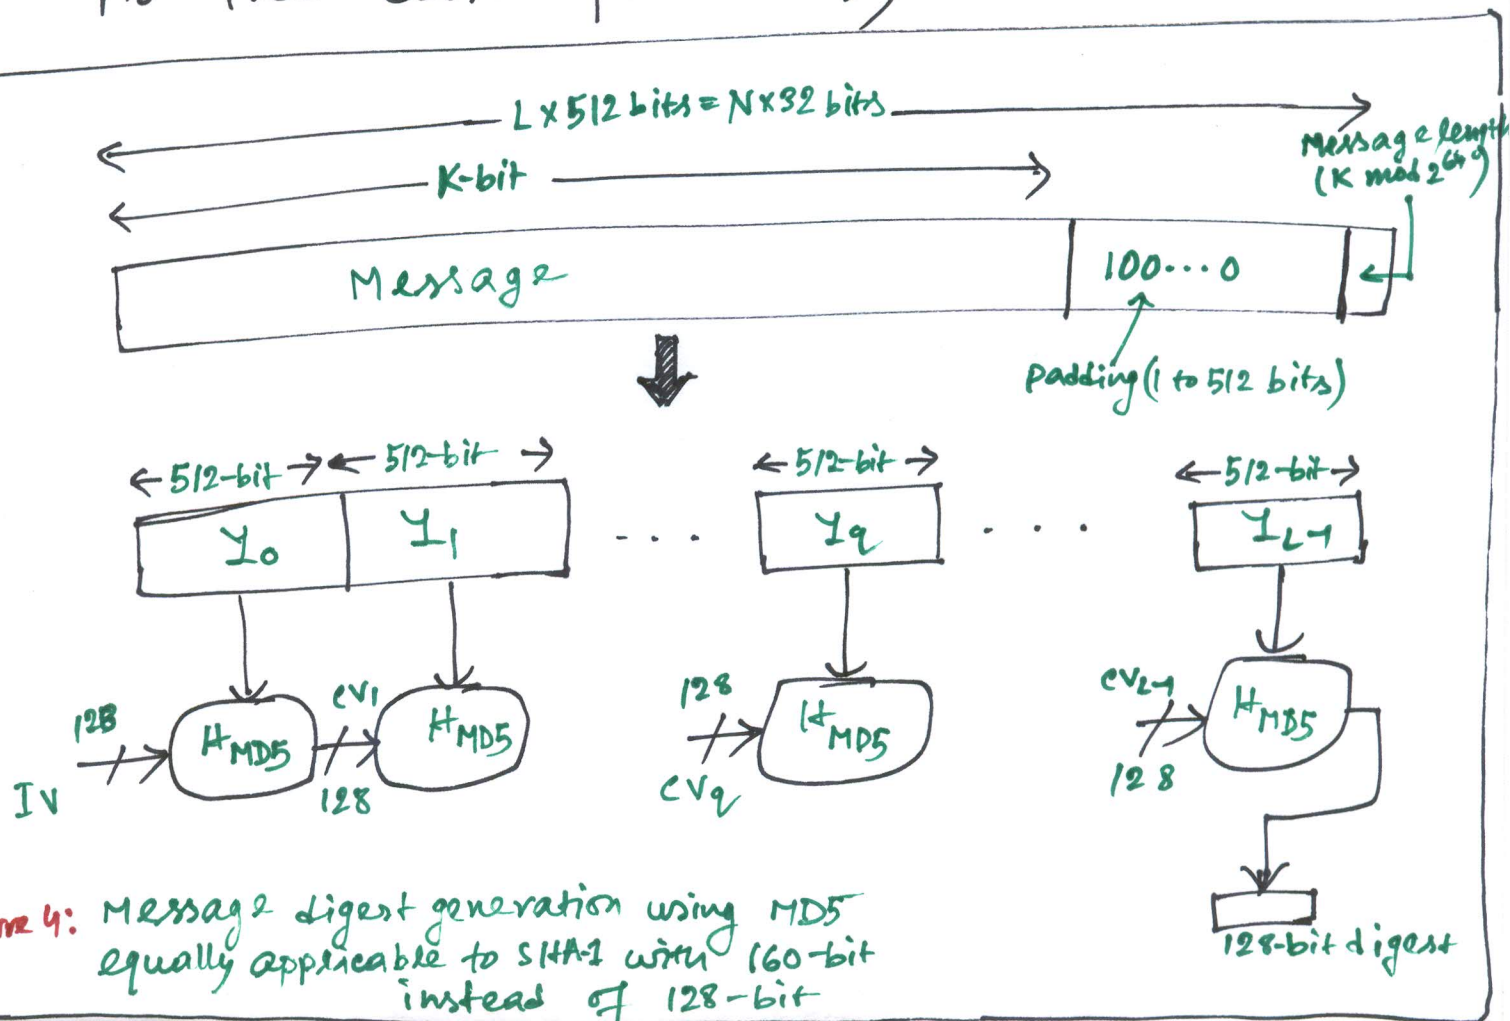 L x 512 bits = N x 32 bits
Message length
(K mod 2^64)
K-bit
Message
100...0
Padding (1 to 512 bits)
512-bit 512-bit 512-bit 512-bit
Y0 Y1 ... Yq ... YL-1
128 CV1 128 CVL-1
HMD5 HMD5 HMD5 HMD5
IV 128 CVq 128
128-bit digest
4: Message digest generation using MD5
equally applicable to SHA-1 with 160-bit
instead of 128-bit